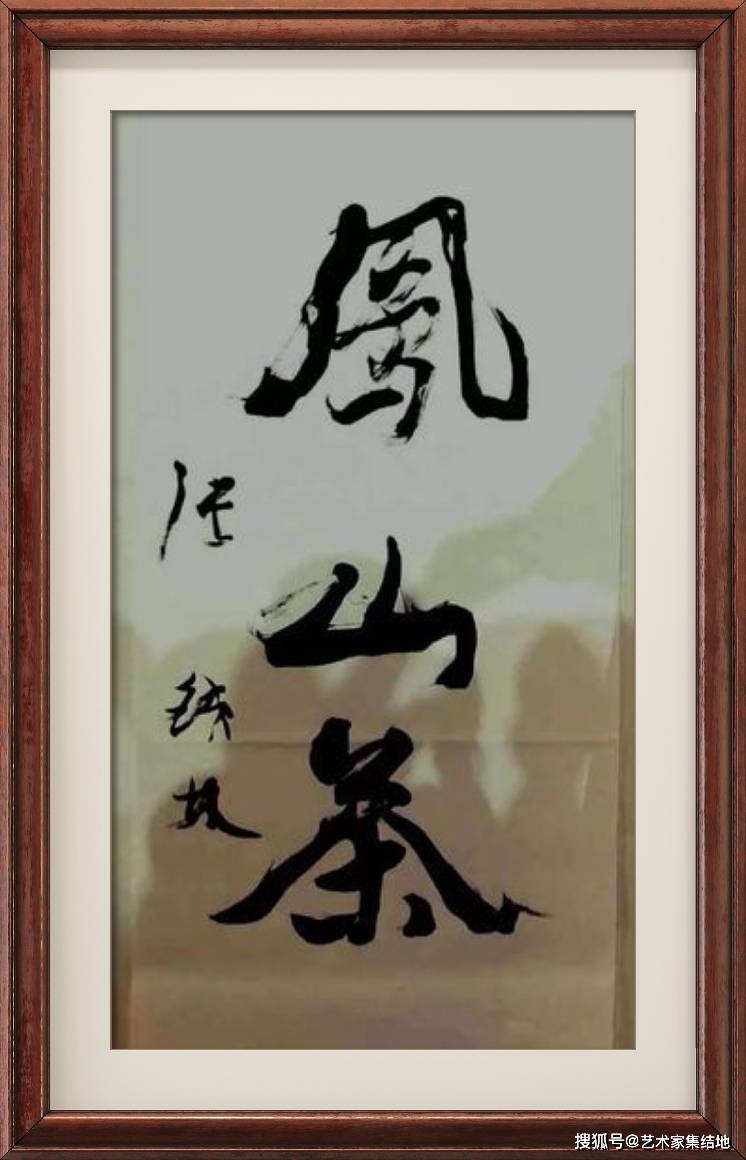 鳳山茶
搜狐号@艺术家集结地